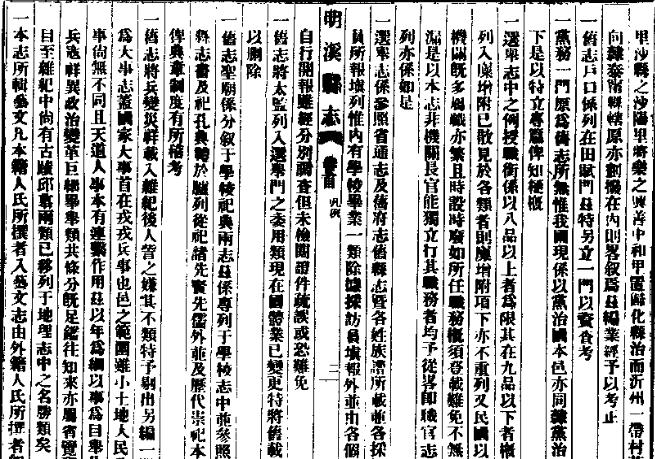 里沙縣之沙陽里將樂之興善中和甲置歸化縣治而沂州一帶村
向隸泰甯縣轄原亦劃撥在內則畧敘爲茲編業經予以考正
一舊志戶口係列在田賦門茲特另立一門以資查考
一黨務一門原爲舊志所無惟我國現係以黨治國本邑亦同隸黨治
下是以特立專篇俾知梗概
一選舉志中之例授職銜係以八品以上者爲限其在九品以下者概
列入廩增附已散見於各類者則廩增附項下亦不重列又民國以
機關旣多職亦繁且時設時廢如所任職務概須登載難免不無
漏是以本志非機關長官能獨立行其職務者均予從畧卽職官志
列亦係如是
一選舉志係參照省通志及舊府志舊縣志暨各姓族譜所載並各採
員所報塡列惟內有學校畢業一類除據採訪員塡報外並由各個
自行開報雖經分別調查但未檢閱證件疏誤或恐難免
明溪縣志 卷首 凡例 二
一舊志將太監列入選舉門之委用類現在國體業已變更特將舊載
以刪除
一舊志聖廟係分敘于學校祀典兩志茲係專列于學校志中並參照
縣志書及祀孔典禮於臚列從祀諸先賢先儒外並及歷代崇祀本
俾典章制度有所稽考
一舊志將兵燹災祥載入雜紀後人訾之嫌其不類特予剔出另編一
爲大事志蓋國家大事首在戎戎兵事也邑之範圍雖小土地人民
事尙無不同且天道人事本有連繫作用茲以年爲綱以事爲目舉
兵寇祥異政治變革巨細畢舉類共條分旣足鑑往知來亦屬省覽
目至雜紀中尙有古蹟邱墓兩類已移列于地理志中之名勝類矣
一本志所輯藝文凡本籍人民所撰者入藝文志由外籍人民所撰者